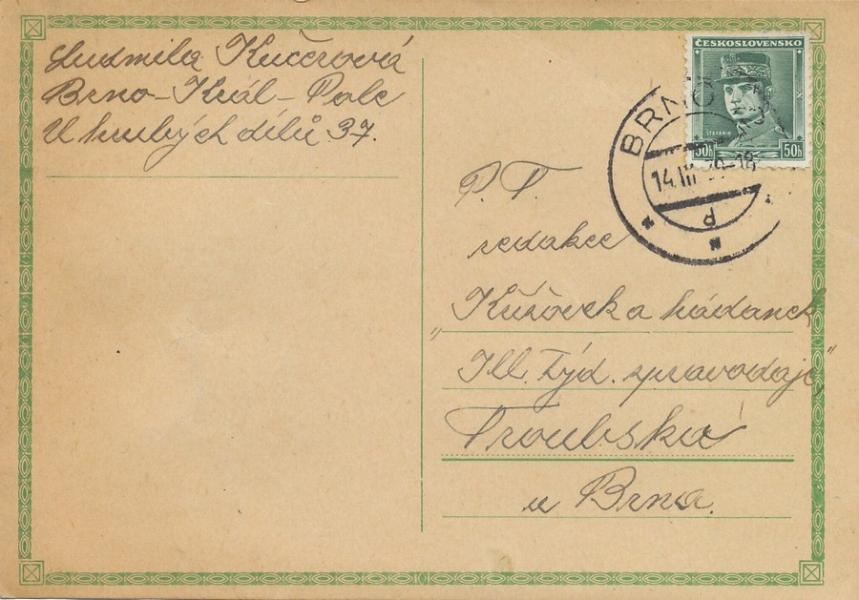 Ludmila Kučerová
Brno-Král-Pole
U hrubých dílů 37.
ČESKOSLOVENSKO
ŠTEFÁNIK
50h 50h
BRNO 2
14.III 39-18
P. T.
redakce
Křížovek a hádanek
„Ill. týd. zpravodaje“
Troubská
u Brna.